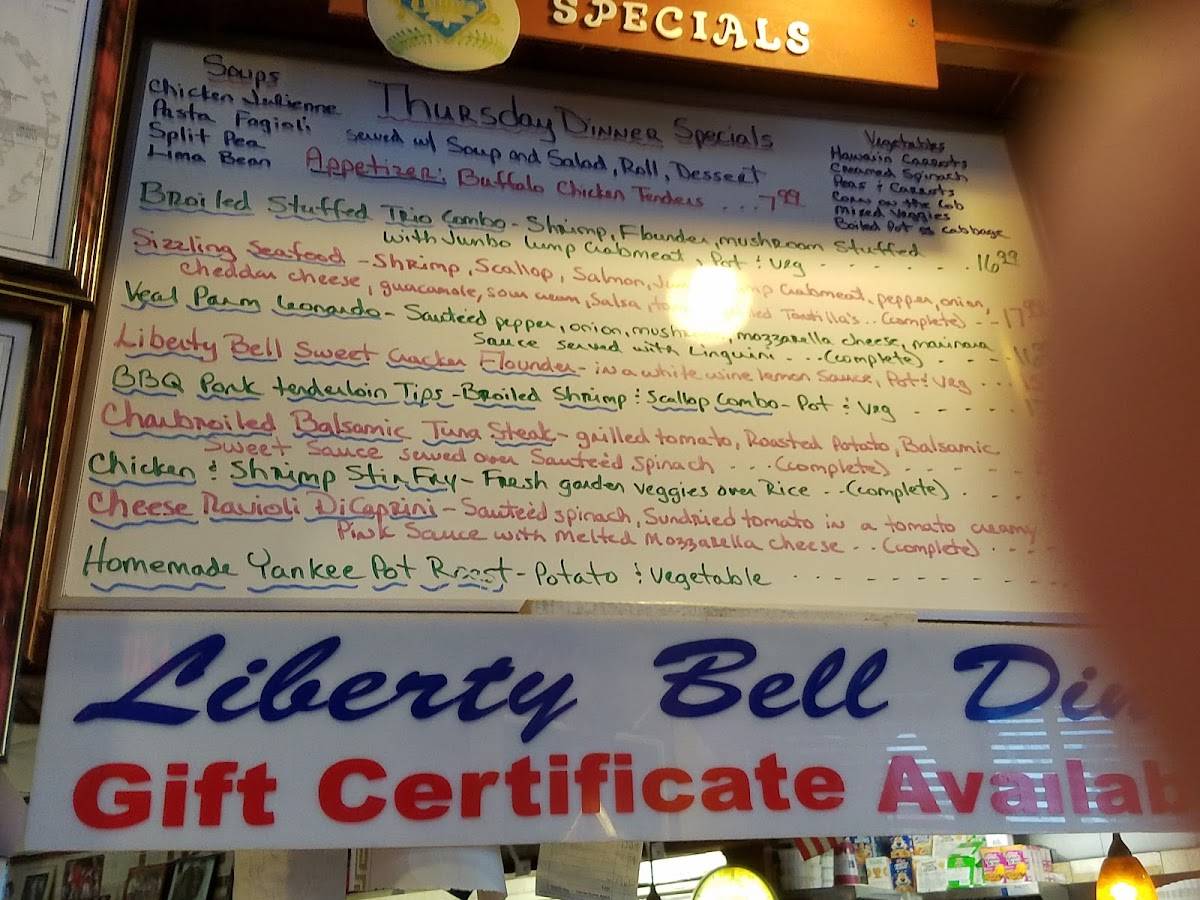 SPECIALS
Soups
Chicken Julienne
Pasta Fagioli
Split Pea
Lima Bean
Thursday Dinner Specials
Served w/ Soup and Salad, Roll, Dessert
Appetizer: Buffalo Chicken Tenders ... 7.99
Vegetables
Hawaiin Carrots
Creamed Spinach
Peas & Carrots
Corn on the Cob
Mixed Veggies
Boiled Pot or Cabbage
Broiled Stuffed Trio Combo - Shrimp, Flounder, mushroom Stuffed
with Jumbo lump Crabmeat, Pot & Veg - - - - - - . 16.99
Sizzling Seafood - Shrimp, Scallop, Salmon, Crabmeat, pepper, onion,
Cheddar cheese, guacamole, sour cream, Salsa, Tortilla's .. (complete) - - 17
Veal Parm Leonardo - Sauteéd pepper, onion, mozzarella cheese, marinara
Sauce served with Linguini - . . (complete)
Liberty Bell Sweet Cracker Flounder - in a white wine lemon Sauce, Pot & Veg ...
BBQ Pork tenderloin Tips - Broiled Shrimp & Scallop Combo - Pot & Veg - - - - -
Charbroiled Balsamic Tuna Steak - grilled tomato, Roasted Potato, Balsamic
Sweet Sauce served over Sauteéd Spinach - - . (complete) - - - - -
Chicken & Shrimp Stir Fry - Fresh garden veggies over Rice . . (complete) .
Cheese Ravioli DiCaprini - Sauteéd spinach, Sundried tomato in a tomato creamy
Pink Sauce with Melted Mozzarella cheese . . (complete) . . . .
Homemade Yankee Pot Roast - Potato & Vegetable - - - - - - - - -
Liberty Bell Din
Gift Certificate Availab